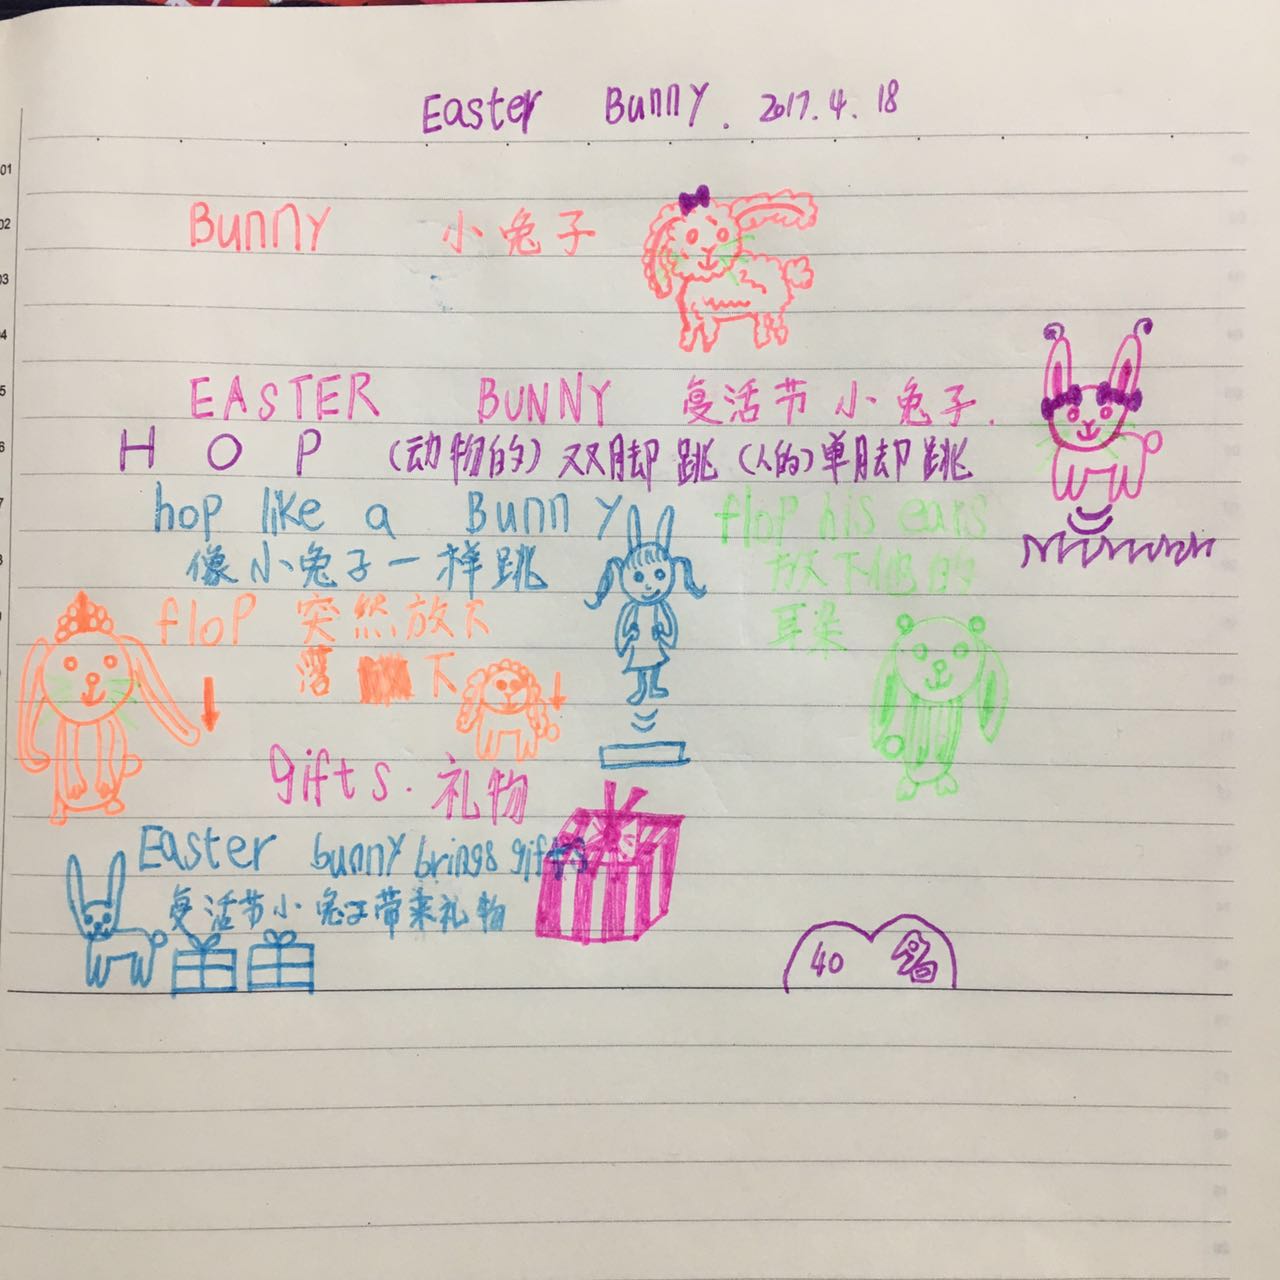 Easter Bunny. 2017.4.18
Bunny 小兔子
EASTER BUNNY 复活节小兔子.
HOP (动物的)双脚跳(人的)单脚跳
hop like a Bunny
像小兔子一样跳
flop his ears
放下他的
耳朵
flop 突然放下
落 下
gifts. 礼物
Easter bunny brings gifts
复活节小兔子带来礼物
40